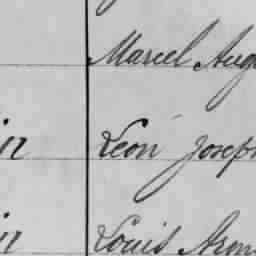 Marcel Aug
in Léon Joseph
in Louis Arm